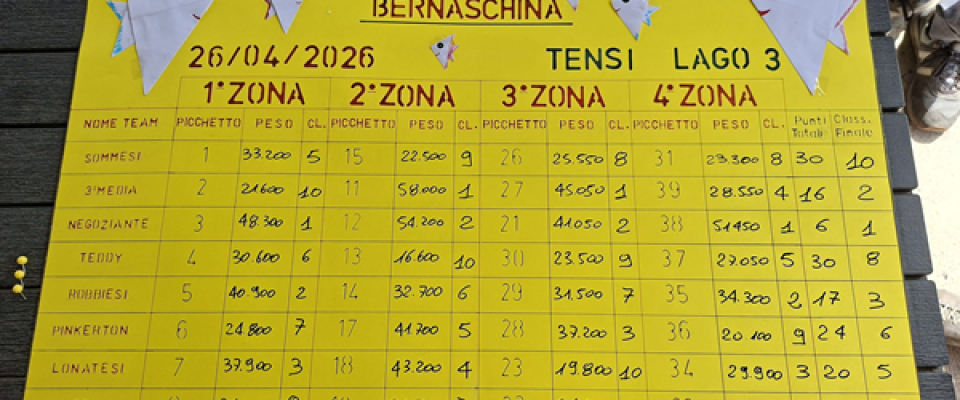 BERNASCHINA
26/04/2026 TENSI LAGO 3
1°ZONA 2°ZONA 3°ZONA 4°ZONA
NOME TEAM PICCHETTO PESO CL. PICCHETTO PESO CL. PICCHETTO PESO CL. PICCHETTO PESO CL. Punti Totali Class. Finale
SOMMESI 1 33.200 5 15 22.500 9 26 25.550 8 31 23.300 8 30 10
3°MEDIA 2 21600 10 11 58.000 1 27 45.050 1 39 28.550 4 16 2
NEGOZIANTE 3 48.300 1 12 54.200 2 21 41.050 2 38 51450 1 6 1
TEDDY 4 30.600 6 13 16.600 10 30 23.500 9 37 27.050 5 30 8
ROBBIESI 5 40.900 2 14 32.700 6 29 31,500 7 35 34.300 2 17 3
PINKERTON 6 24.800 7 17 41.700 5 28 37.200 3 36 20.100 9 24 6
LONATESI 7 37.900 3 18 43.200 4 23 19.800 10 34 29.900 3 20 5